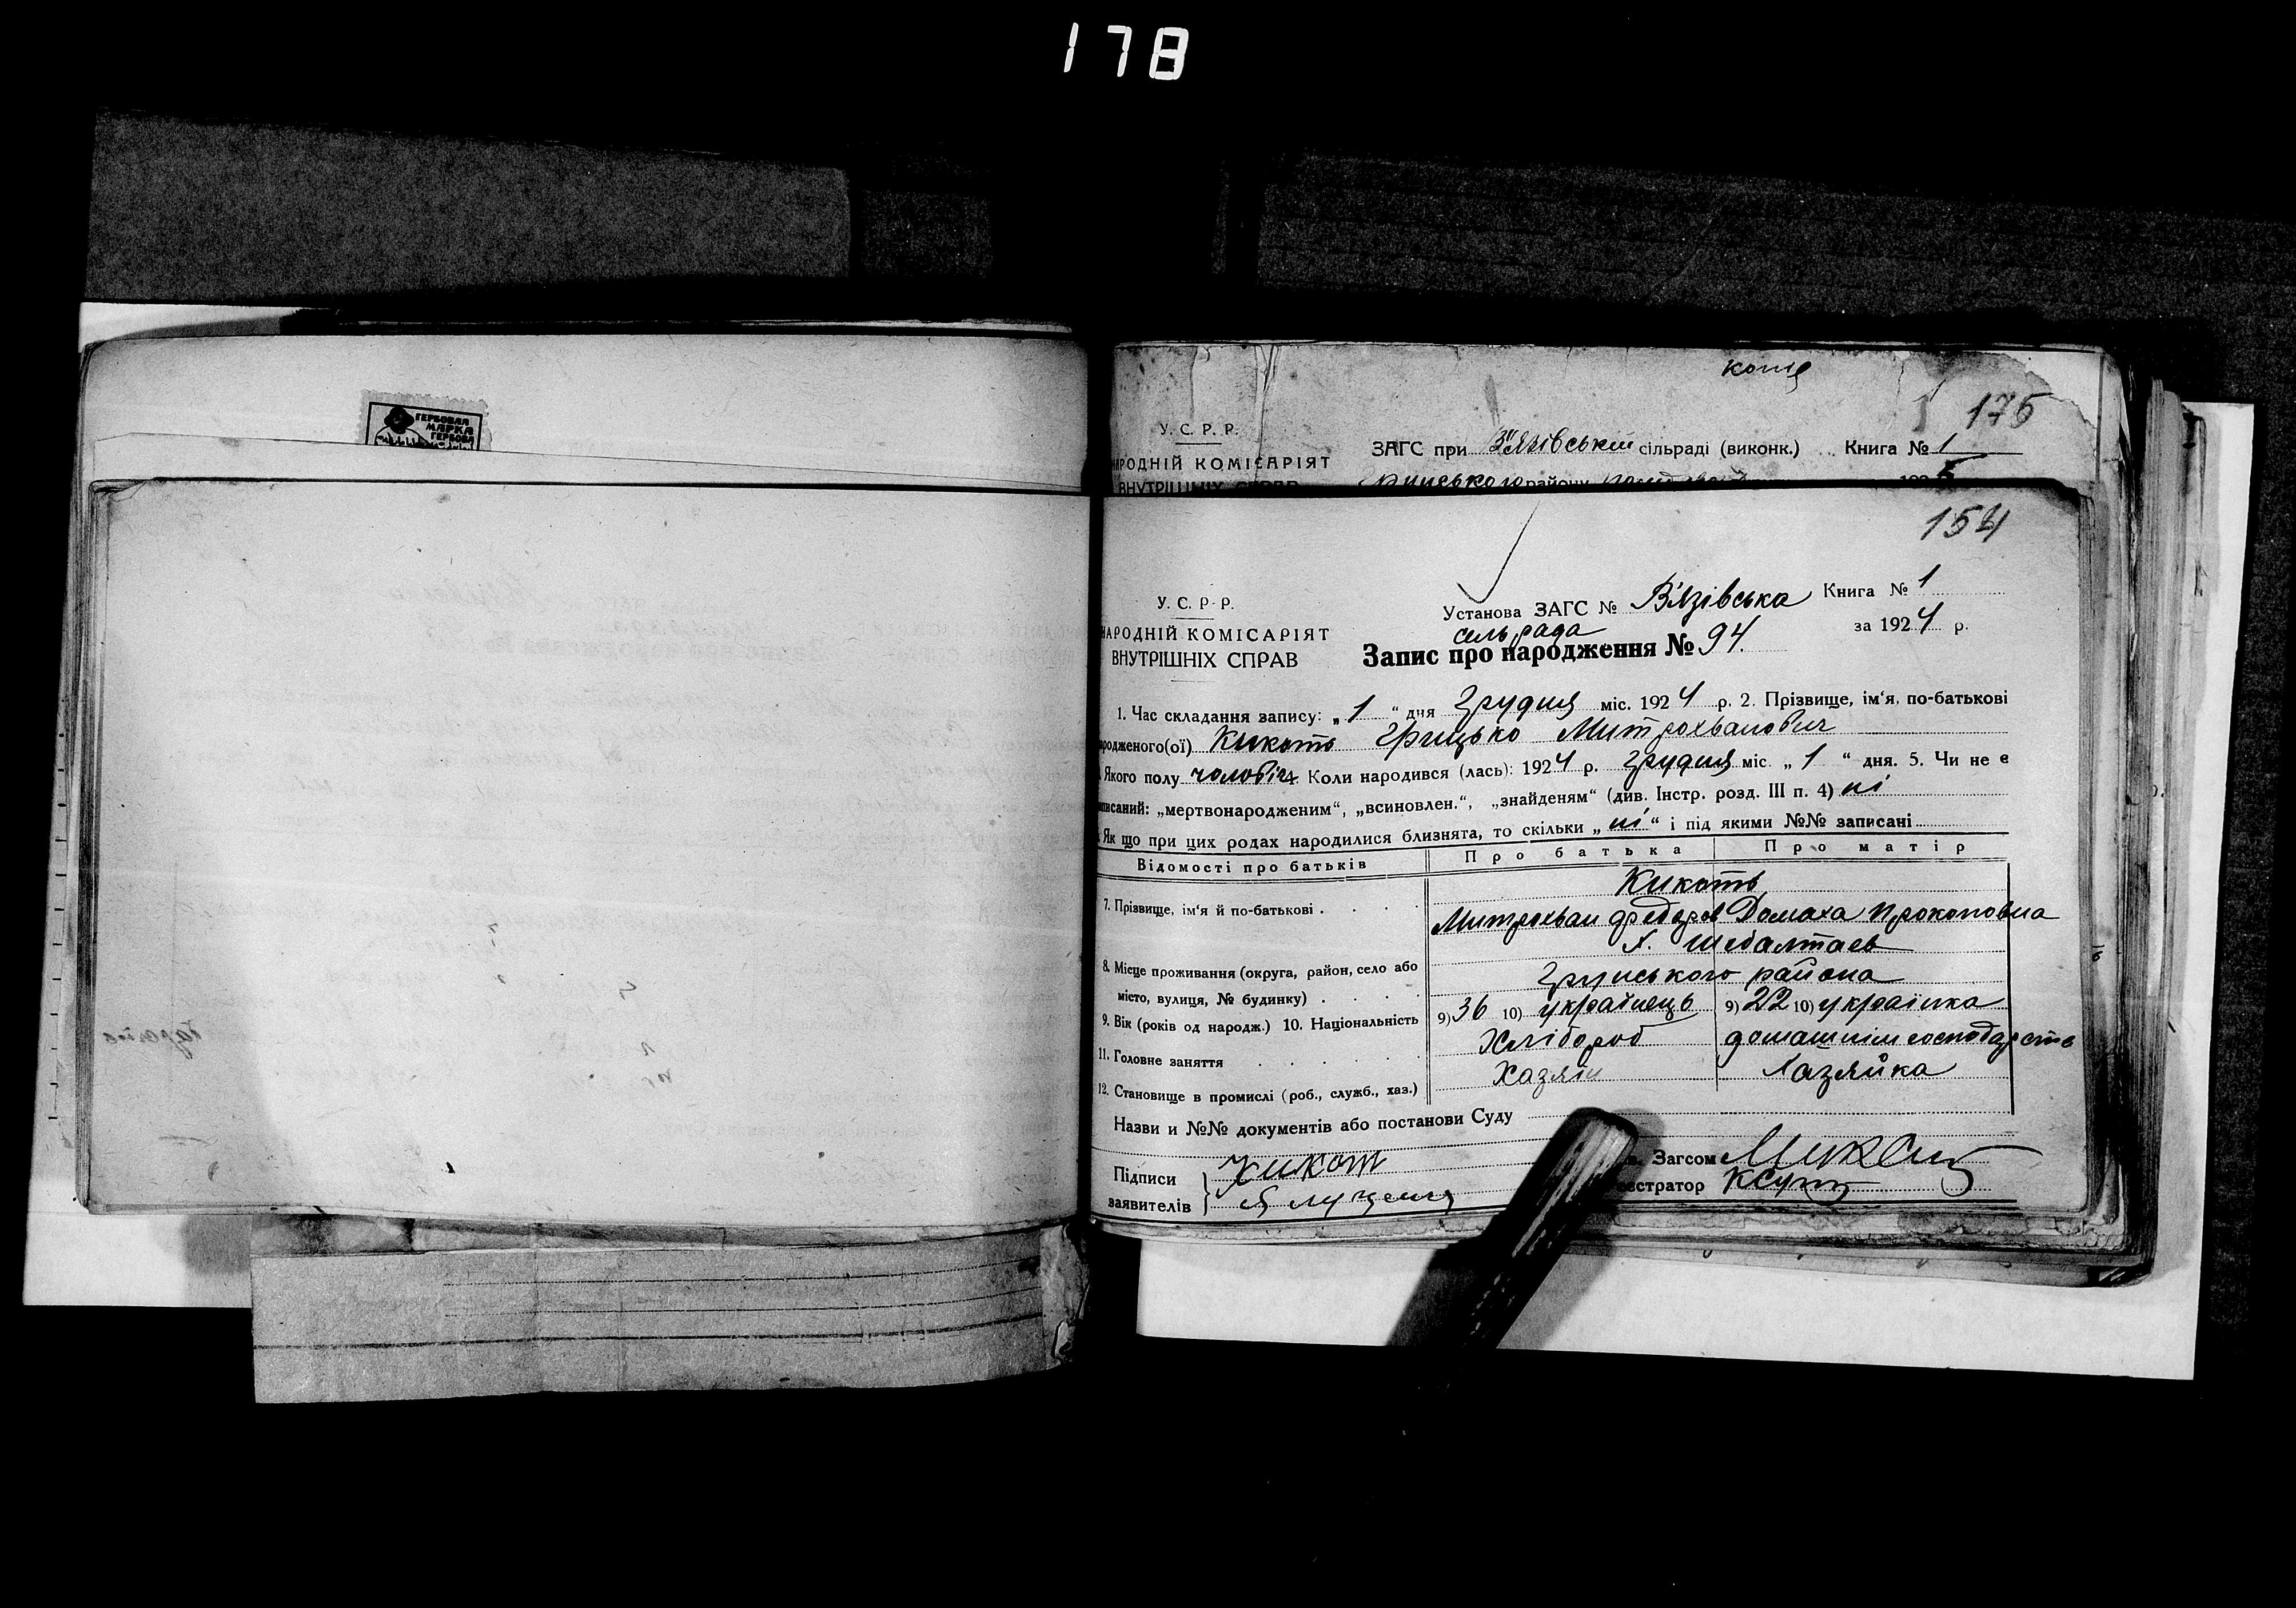 178
ГЕРБОВАЯ
МАРКА
ГЕРБОВА
175
У. С. Р. Р.
ЗАГС при В'язівській сільраді (виконк.) Книга № 1
НАРОДНІЙ КОМІСАРІЯТ
ВНУТРІШНІХ СПРАВ
району
154
У. С. Р. Р.
Установа ЗАГС № Вʼязівська Книга № 1
сільрада
за 1924 р.
НАРОДНІЙ КОМІСАРІЯТ
ВНУТРІШНІХ СПРАВ
Запис про народження № 94.
1. Час складання запису: „1“ дня Грудня міс. 1924 р. 2. Прізвище, ім'я, по-батькові
родженого(ої) Кикоть Грицько Митрохванович
Якого полу чоловіч. 4. Коли народився (лась): 1924 р. Грудня міс. „1“ дня. 5. Чи не є
писаний: „мертвонародженим“, „всиновлен.“, „знайденям“ (див. Інстр. розд. III п. 4) ні
Як що при цих родах народилися близнята, то скільки „ні“ і під якими №№ записані
Відомості про батьків Про батька Про матір
7. Прізвище, ім'я й по-батькові Кикоть
Митрохван Федоров Домаха Прокоповна
8. Місце проживання (округа, район, село або місто, вулиця, № будинку) х. Шебалтаев
Грунського района
9. Вік (років од народж.) 10. Національність 9) 36 10) українець 9) 22 10) українка
11. Головне заняття Хлібороб домашнім господарств
12. Становище в промислі (роб., служб., хаз.) Хазяін Хазяйка
Назви и №№ документів або постанови Суду
Підписи заявителів Кикот
Загсом